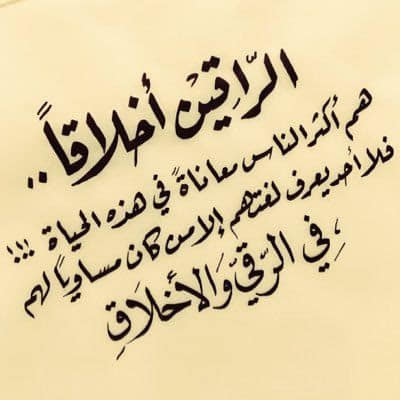 الرّاقِيْن أخلاقاً..
هم أكثر الناس معاناةً في هذه الحياة !!!
فلا أحد يعرف لغتهم إلا من كان مساوياً لهم
،فِي الرقيِّ وَالأخلَاقِ